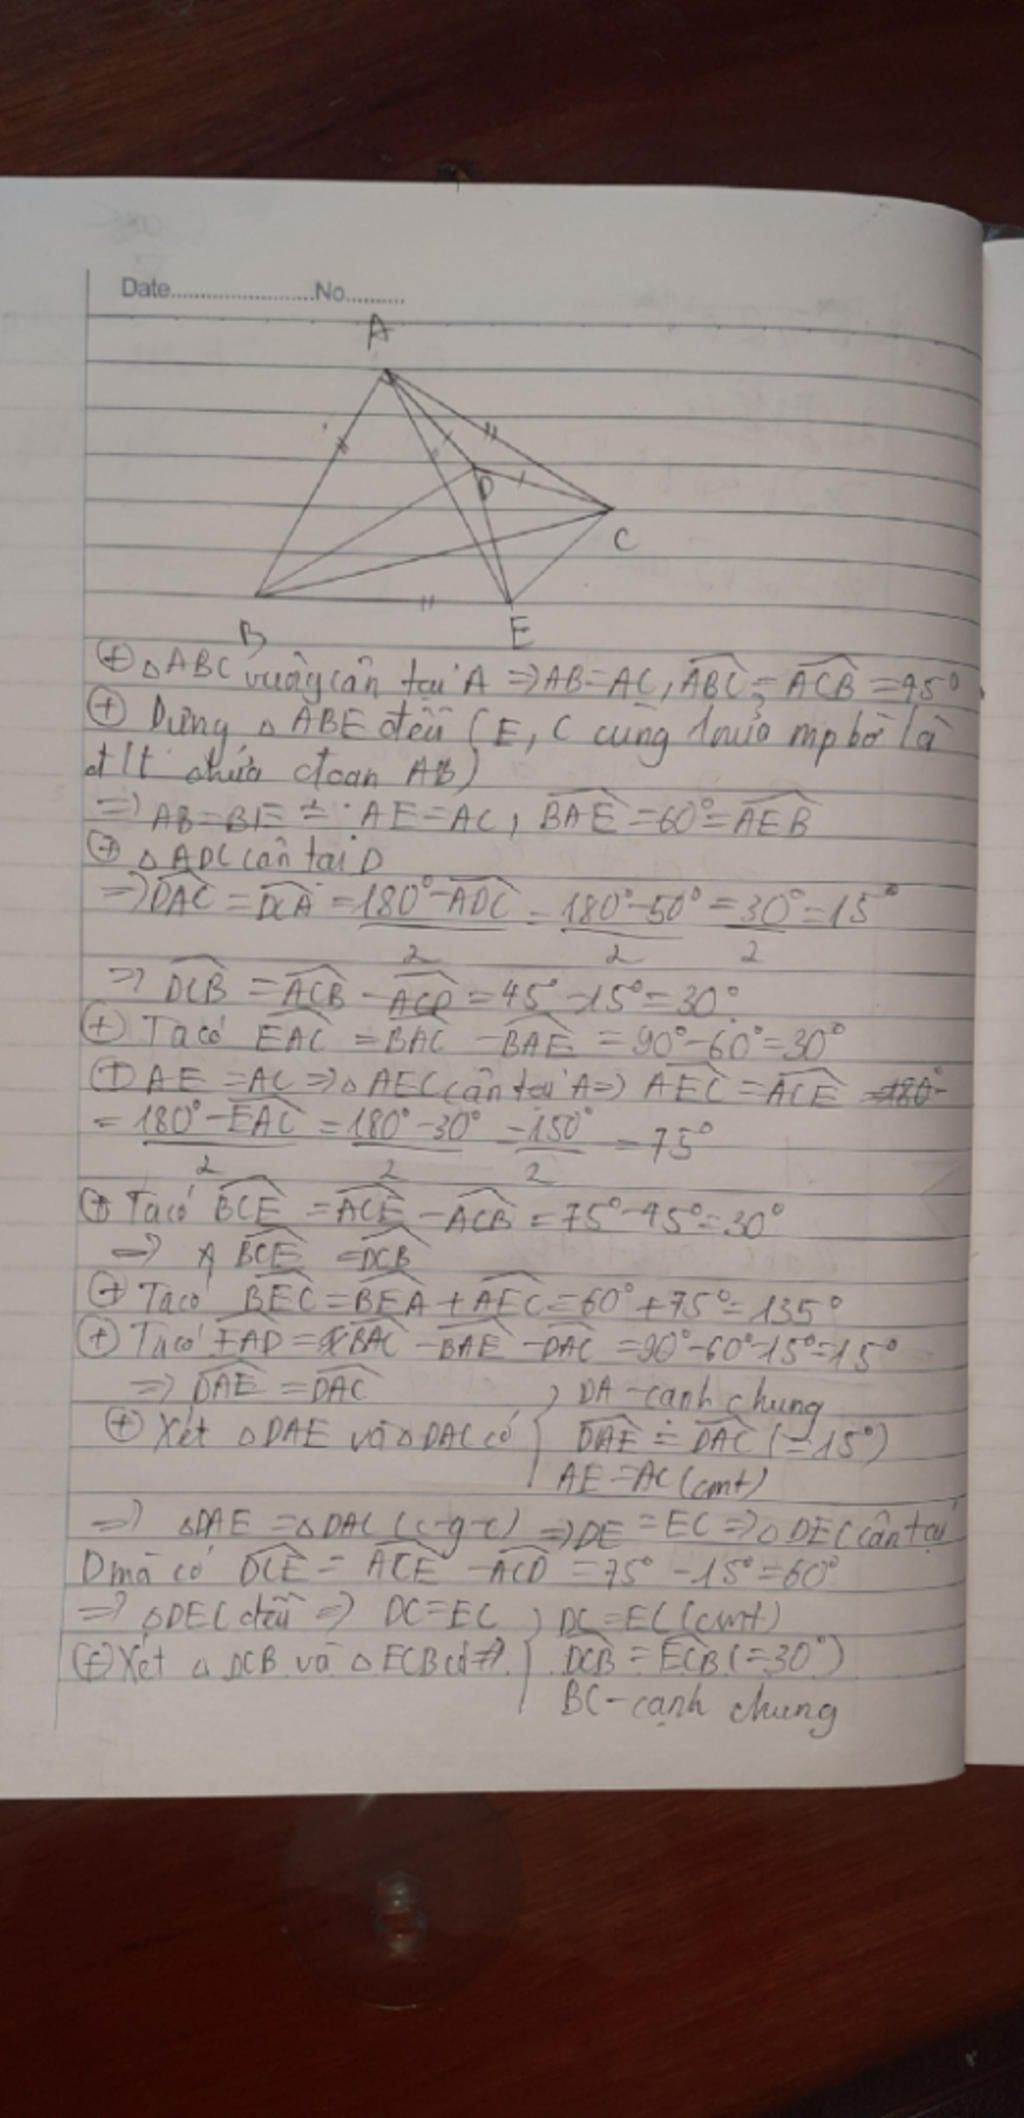 Date......................No..........
A
D
C
B
E
⊕ △ABC vuông cân tại A ⇒ AB=AC, ABC = ACB = 45°
⊕ Dựng △ABE đều (E, C cùng thuộc mp bờ là
đ/t chứa đoạn AB)
⇒ AB=BE = AE=AC, BAE = 60° = AEB
⊕ △ADC cân tại D
⇒ DAC = DCA = (180°-ADC)/2 = (180°-50°)/2 = 30°/2 = 15°
⇒ DCB = ACB - ACD = 45° - 15° = 30°
⊕ Ta có EAC = BAC - BAE = 90° - 60° = 30°
⊕ AE = AC ⇒ △AEC cân tại A ⇒ AEC = ACE
= (180°-EAC)/2 = (180°-30°)/2 = 150°/2 = 75°
⊕ Ta có BCE = ACE - ACB = 75° - 45° = 30°
⇒ BCE = DCB
⊕ Ta có BEC = BEA + AEC = 60° + 75° = 135°
⊕ Ta có EAD = BAC - BAE - DAC = 90°-60°-15°=15°
⇒ DAE = DAC
⊕ Xét △DAE và △DAC có { DA - cạnh chung
DAE = DAC (=15°)
AE = AC (cmt)
⇒ △DAE = △DAC (c-g-c) ⇒ DE = EC ⇒ △DEC cân tại
D mà có DCE = ACE - ACD = 75° - 15° = 60°
⇒ △DEC đều ⇒ DC=EC
⊕ Xét △DCB và △ECB có { DC = EC (cmt)
DCB = ECB (=30°)
BC - cạnh chung